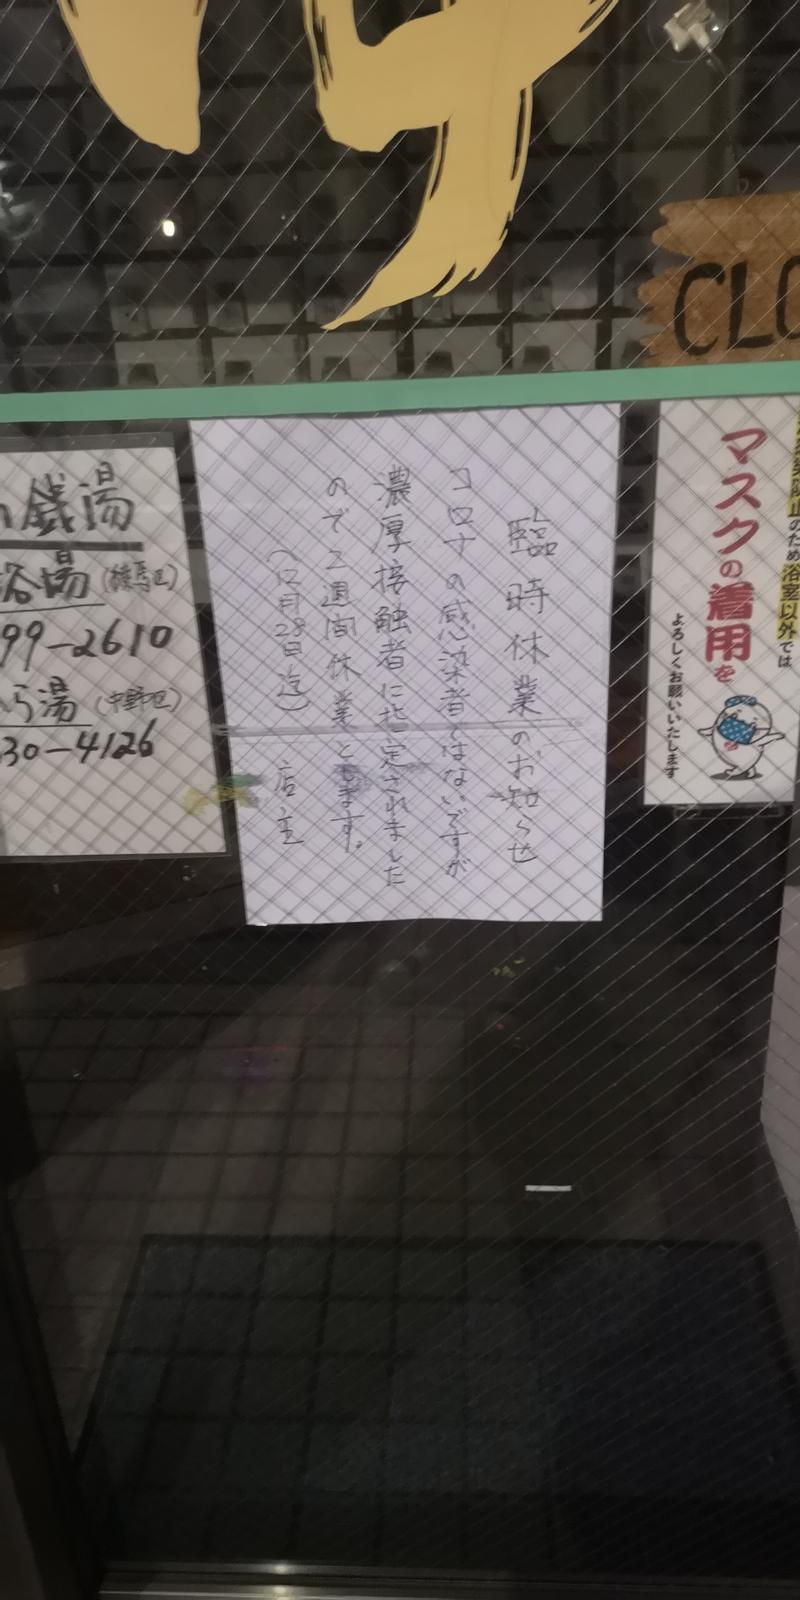 CLO
臨時休業のお知らせ
コロナの感染者ではないですが
濃厚接触者に指定されました
ので2週間休業とします。
(12月28日迄) 店主
銭湯
浴場(練馬区)
99-2610
ら湯(中野区)
30-4126
のため浴室以外では
マスクの着用を
よろしくお願いいたします